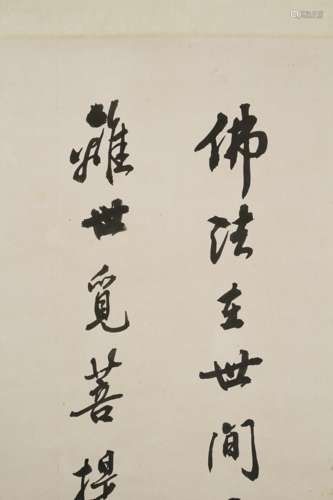 佛法在世间
离世觅菩提